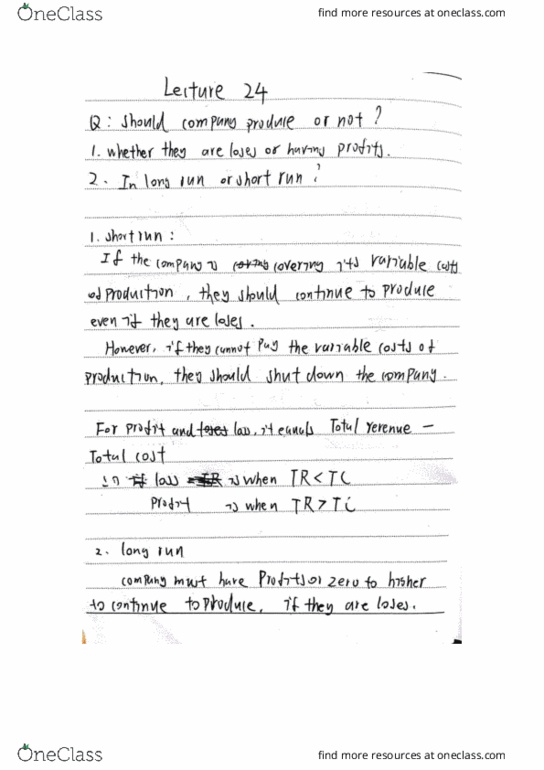 OneClass
find more resources at oneclass.com
Lecture 24
Q: should company produce or not?
1. whether they are loses or having profits.
2. In long run or short run?
1. short run:
If the company is covering its variable costs
of production, they should continue to produce
even if they are loses.
However, if they cannot pay the variable costs of
production, they should shut down the company.
For profit and loss, it equals Total revenue -
Total cost
in loss is when TR < TC
Profit is when TR > TC
2. long run
company must have Profits of zero to higher
to continue to produce, if they are loses.
OneClass
find more resources at oneclass.com